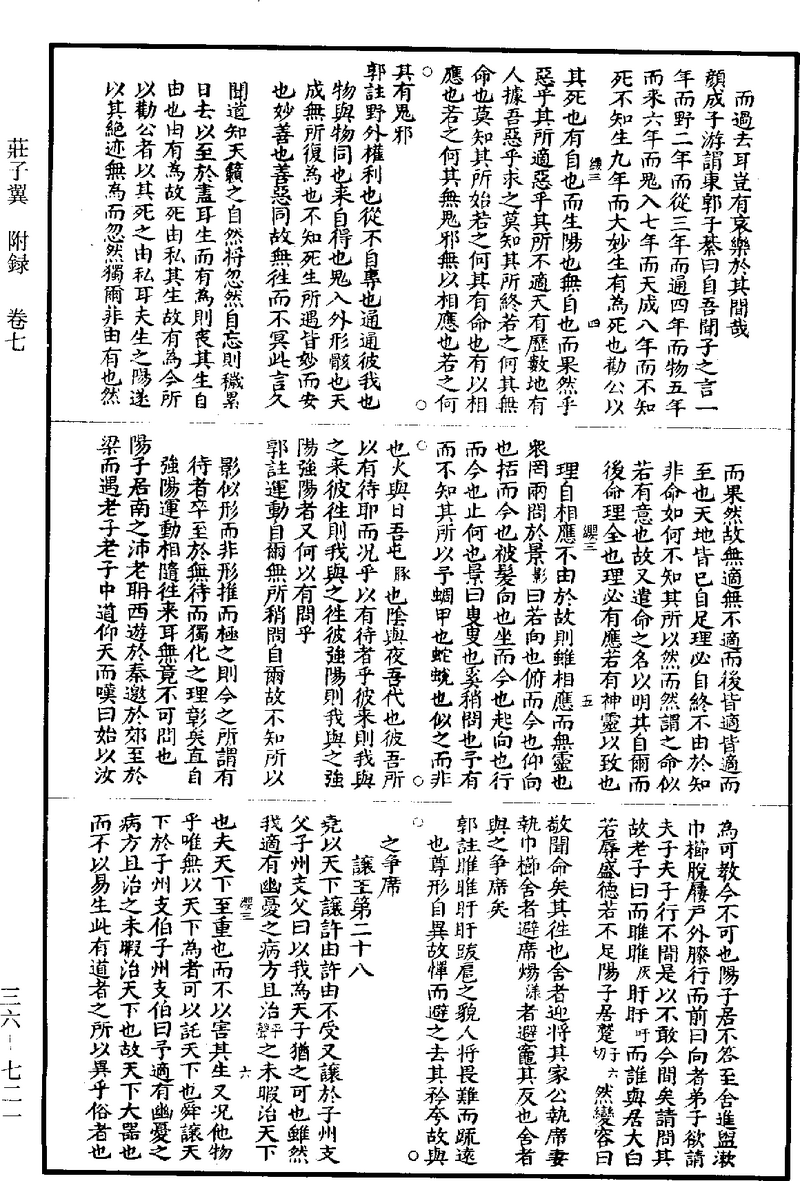 莊子翼 附録 卷七
三六-七二一
而過去耳豈有哀樂於其間哉
顔成子游謂東郭子綦曰自吾聞子之言一
年而野二年而從三年而通四年而物五年
而来六年而鬼入七年而天成八年而不知
死不知生九年而大妙生有為死也勸公以
纓三 四
其死也有自也而生陽也無自也而果然乎
惡乎其所適惡乎其所不適天有歷數地有
人據吾惡乎求之莫知其所終若之何其無
命也莫知其所始若之何其有命也有以相
應也若之何其無鬼邪無以相應也若之何
其有鬼邪
郭註野外權利也從不自專也通通彼我也
物與物同也来自得也鬼入外形骸也天
成無所復為也不知死生所遇皆妙而安
也妙善也善惡同故無往而不冥此言久
聞道知天籟之自然将忽然自忘則穢累
日去以至於盡耳生而有為則喪其生自
由也由有為故死由私其生故有為今所
以勸公者以其死之由私耳夫生之陽遂
以其絶迹無為而忽然獨爾非由有也然
而果然故無適無不適而後皆適皆適而
至也天地皆已自足理必自終不由於知
非命如何不知其所以然而然謂之命似
若有意也故又遣命之名以明其自爾而
後命理全也理必有應若有神靈以致也
纓三 五
理自相應不由於故則雖相應而無靈也
衆罔兩問於景影曰若向也俯而今也仰向
也括而今也被髮向也坐而今也起向也行
而今也止何也景曰叟叟也奚稍問也予有
而不知其所以予蜩甲也蛇蛻也似之而非
也火與日吾屯豚也陰與夜吾代也彼吾所
以有待耶而况乎以有待者乎彼来則我與
之来彼往則我與之往彼強陽則我與之強
陽強陽者又何以有問乎
郭註運動自爾無所稍問自爾故不知所以
影似形而非形推而極之則今之所謂有
待者卒至於無待而獨化之理彰矣直自
強陽運動相隨往来耳無竟不可問也
陽子居南之沛老聃西遊於秦邀於郊至於
梁而遇老子老子中道仰天而嘆曰始以汝
為可教今不可也陽子居不答至舎進盥漱
巾櫛脫屨戶外膝行而前曰向者弟子欲請
夫子夫子行不間是以不敢今間矣請問其
故老子曰而睢睢灰盱盱吁而誰與居大白
若辱盛德若不足陽子居蹵子六切然變容曰
敬聞命矣其往也舎者迎将其家公執席妻
執巾櫛舎者避席煬漾者避竈其反也舎者
與之爭席矣
郭註睢睢盱盱跋扈之貌人将畏難而疏逺
也尊形自異故憚而避之去其矜夸故與
之爭席
讓王第二十八
堯以天下讓許由許由不受又讓於子州支
父子州支父曰以我為天子猶之可也雖然
我適有幽憂之病方且治平聲之未暇治天下
纓三 六
也夫天下至重也而不以害其生又况他物
乎唯無以天下為者可以託天下也舜讓天
下於子州支伯子州支伯曰予適有幽憂之
病方且治之未暇治天下也故天下大器也
而不以易生此有道者之所以異乎俗者也